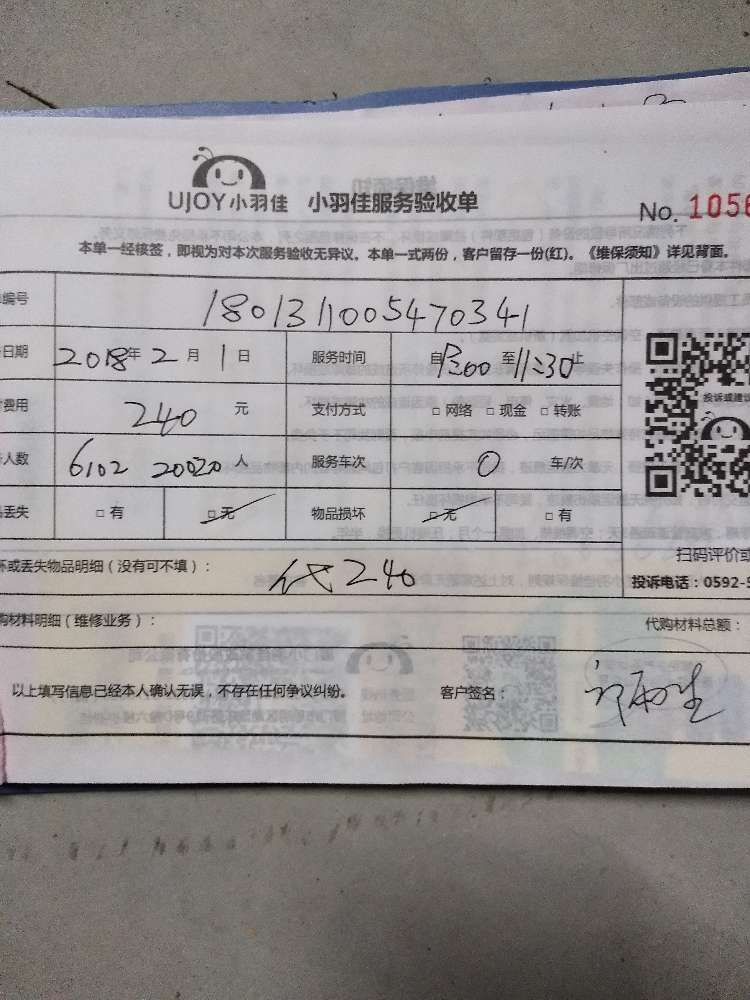 UJOY小羽佳 小羽佳服务验收单 No. 1056
本单一经核签，即视为对本次服务验收无异议。本单一式两份，客户留存一份(红)。《维保须知》详见背面。
编号 1801311005470341
日期 2018年 2月 1日 服务时间 自8:00至11:30止
费用 240 元 支付方式 □ 网络 □ 现金 □ 转账
人数 6102 人 服务车次 0 车/次
丢失 □ 有 □ 无 物品损坏 □ 无 □ 有
投诉或建议
坏或丢失物品明细（没有可不填）： 代240
扫码评价或
投诉电话：0592-5
购材料明细（维修业务）： 代购材料总额：
以上填写信息已经本人确认无误，不存在任何争议纠纷。 客户签名：